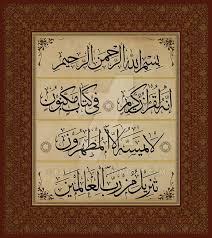 بسم الله الرحمن الرحيم
إنه لقرآن كريم في كتاب مكنون
لا يمسه إلا المطهرون
تنزيل من رب العالمين